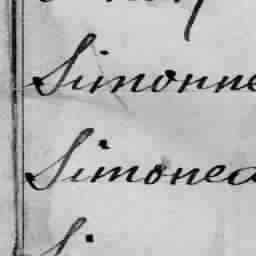 Simonne
Simonea
Si